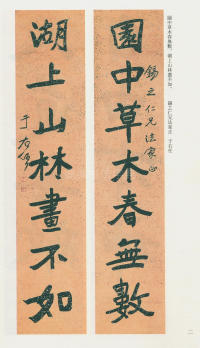 園中草木春無數
錫之仁兄法家正
湖上山林畫不如
于右任
園中草木春無數，湖上山林畫不如。
錫之仁兄法家正　于右任